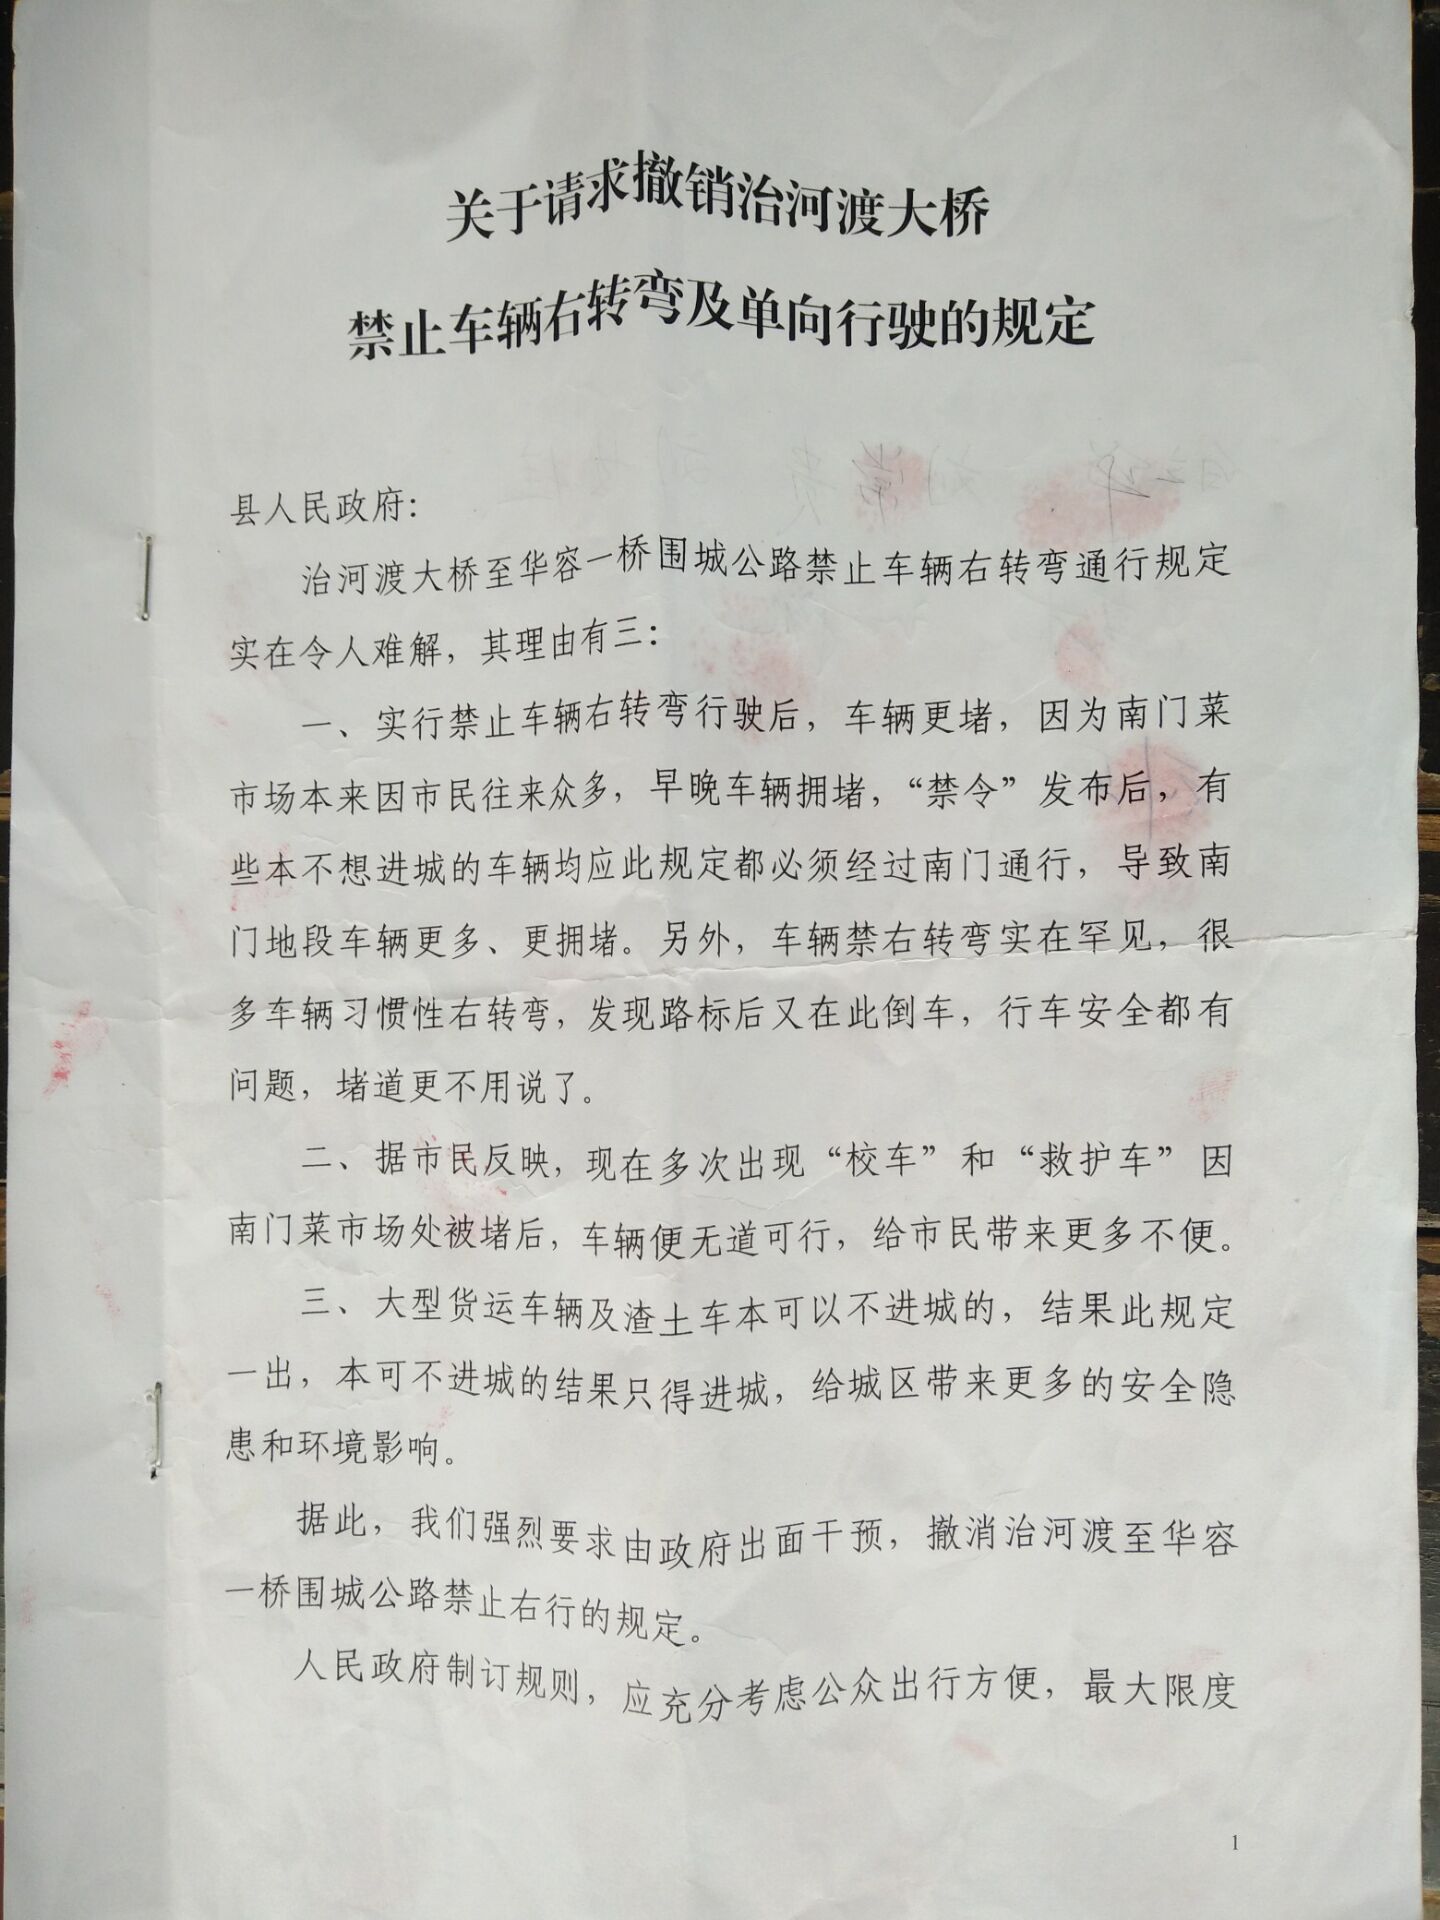 关于请求撤销治河渡大桥
禁止车辆右转弯及单向行驶的规定
县人民政府：
治河渡大桥至华容一桥围城公路禁止车辆右转弯通行规定
实在令人难解，其理由有三：
一、实行禁止车辆右转弯行驶后，车辆更堵，因为南门菜
市场本来因市民往来众多，早晚车辆拥堵，“禁令”发布后，有
些本不想进城的车辆均应此规定都必须经过南门通行，导致南
门地段车辆更多、更拥堵。另外，车辆禁右转弯实在罕见，很
多车辆习惯性右转弯，发现路标后又在此倒车，行车安全都有
问题，堵道更不用说了。
二、据市民反映，现在多次出现“校车”和“救护车”因
南门菜市场处被堵后，车辆便无道可行，给市民带来更多不便。
三、大型货运车辆及渣土车本可以不进城的，结果此规定
一出，本可不进城的结果只得进城，给城区带来更多的安全隐
患和环境影响。
据此，我们强烈要求由政府出面干预，撤消治河渡至华容
一桥围城公路禁止右行的规定。
人民政府制订规则，应充分考虑公众出行方便，最大限度
1